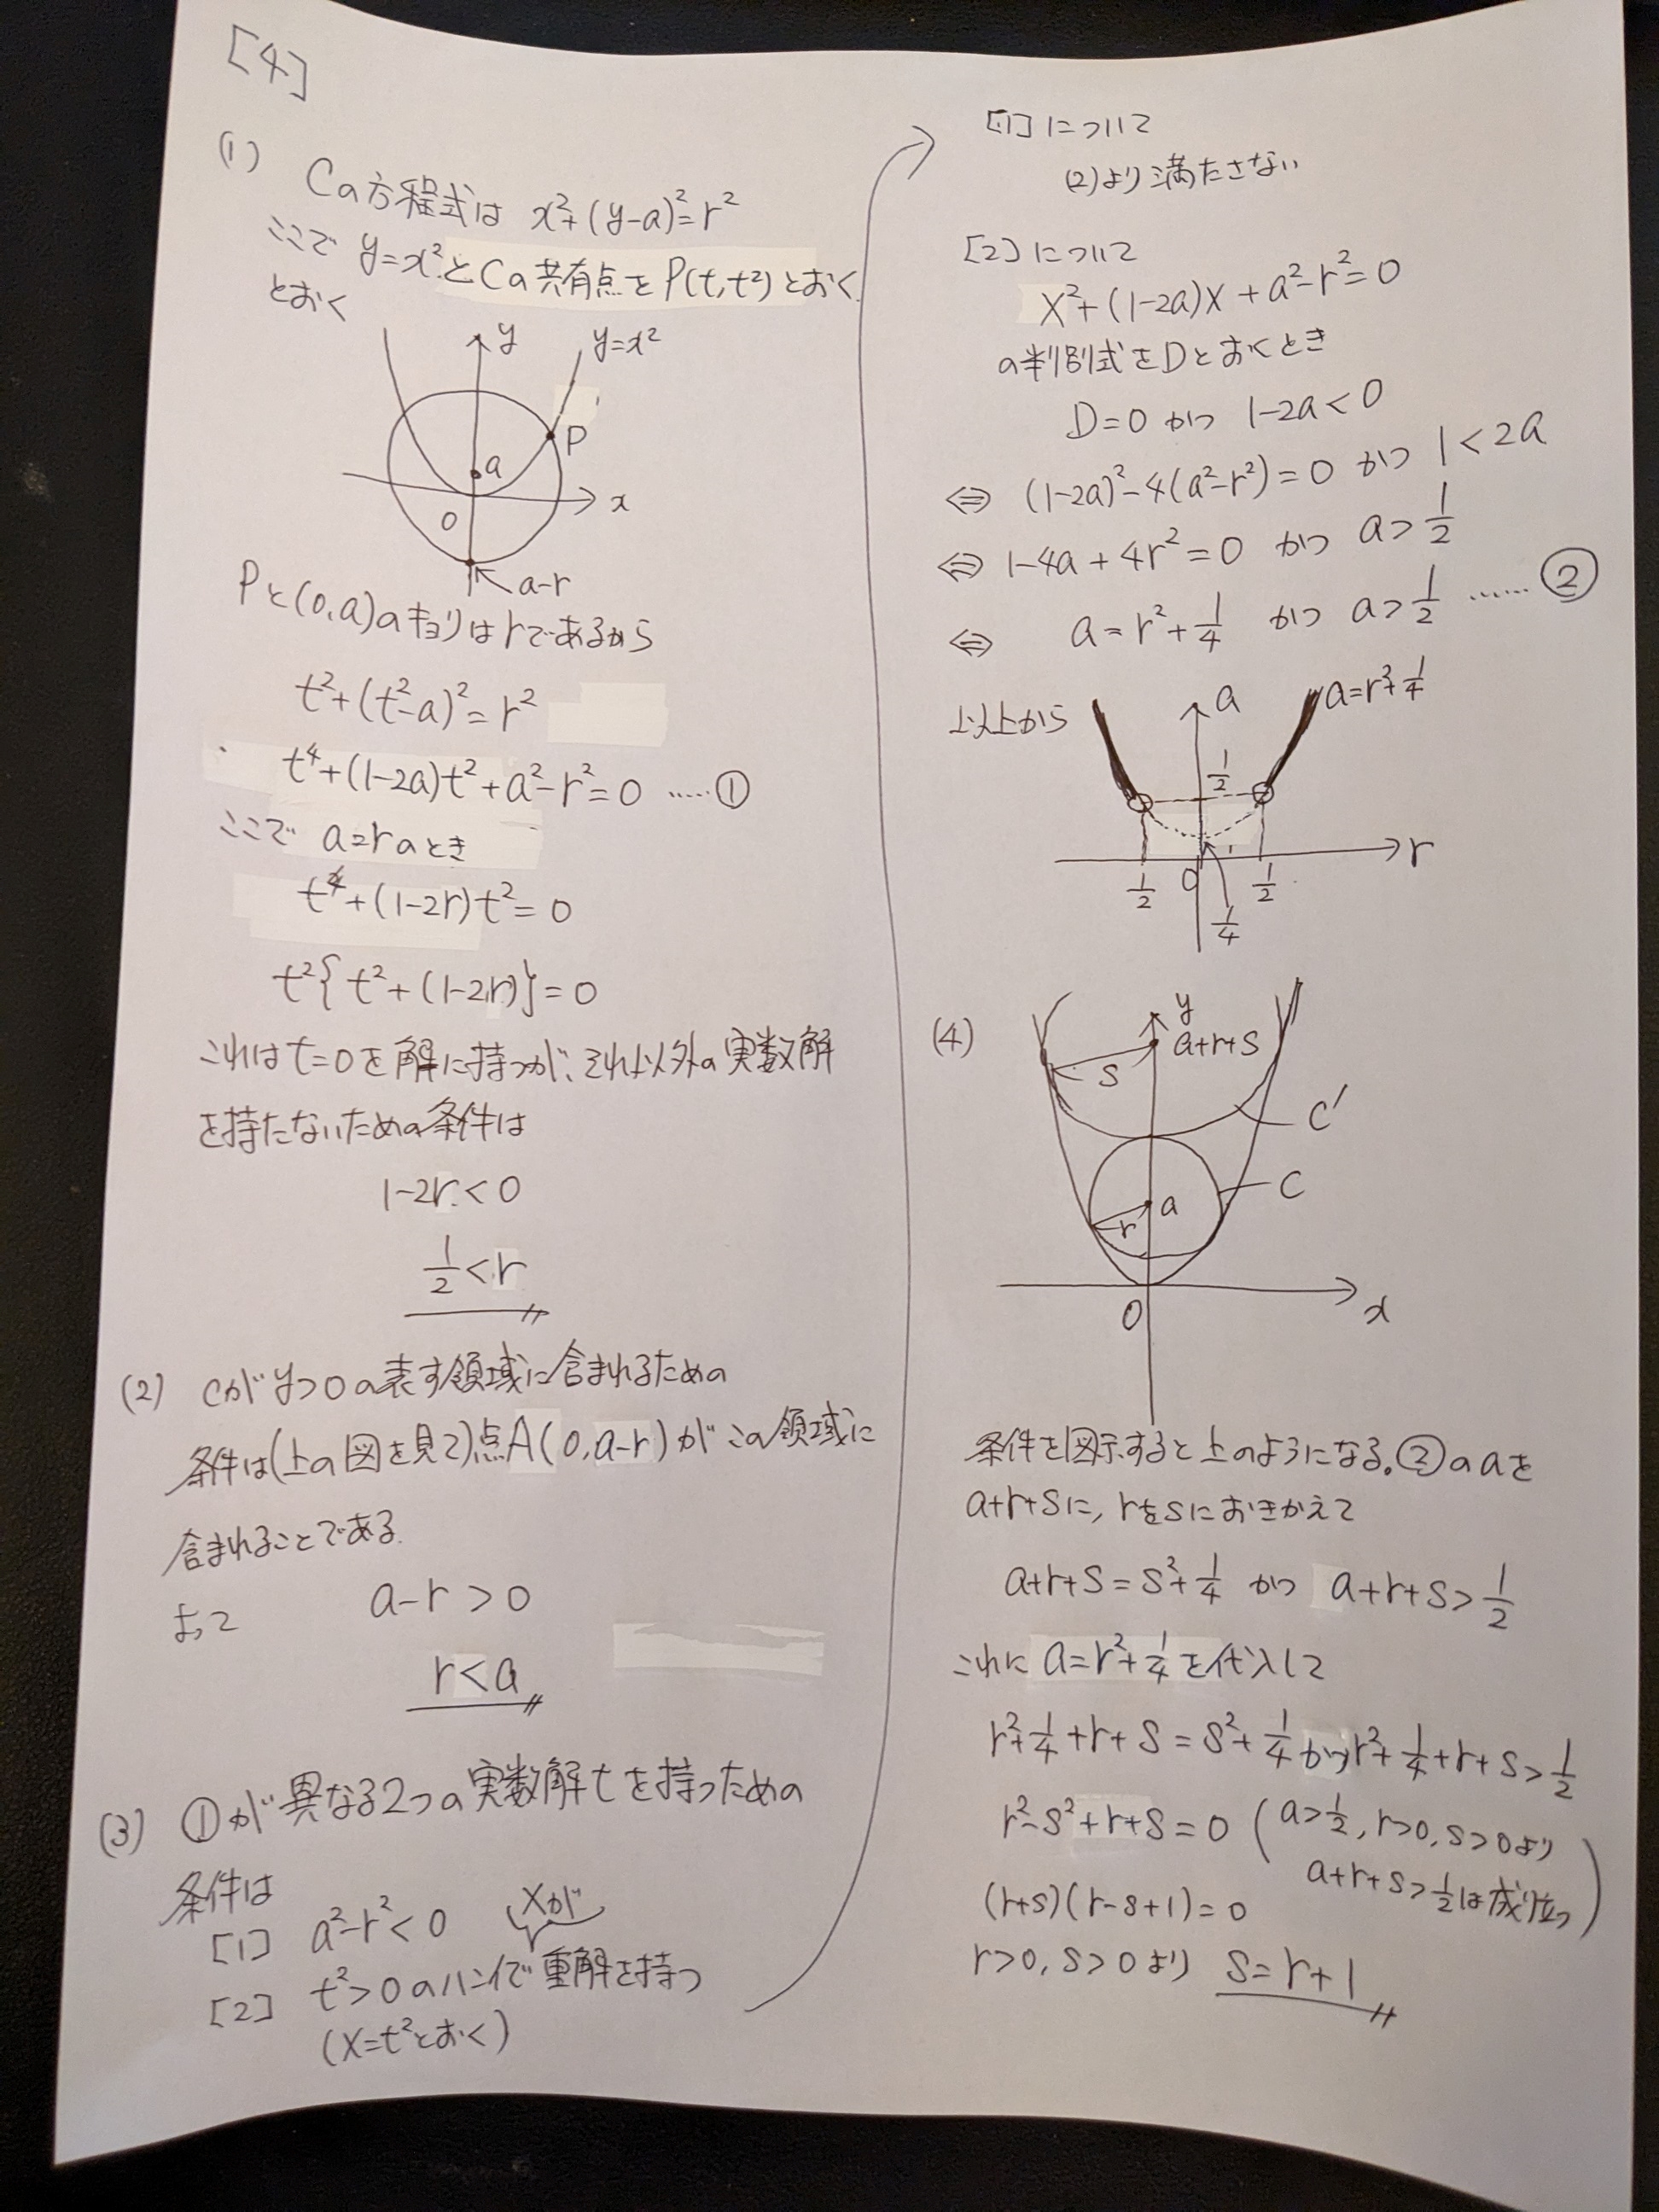 [4]
(1) Cの方程式は x²+(y-a)²=r²
ここで y=x²とCの共有点をP(t,t²)とおく
とおく
y
y=x²
P
a
x
0
a-r
Pと(0,a)のキョリはrであるから
t²+(t²-a)²=r²
t⁴+(1-2a)t²+a²-r²=0 ……①
ここで a=rのとき
t⁴+(1-2r)t²=0
t²{t²+(1-2r)}=0
これはt=0を解に持つが、それ以外の実数解
を持たないための条件は
1-2r<0
1/2<r
(2) Cがy>0の表す領域に含まれるための
条件は(上の図を見て)点A(0,a-r)がこの領域に
含まれることである.
よって a-r>0
r<a
(3) ①が異なる2つの実数解tを持つための
条件は
[1] a²-r²<0
Xが
[2] t²>0のハンイで重解を持つ
(X=t²とおく)
[1]について
(2)より満たさない
[2]について
X²+(1-2a)X+a²-r²=0
の判別式をDとおくとき
D=0 かつ 1-2a<0
⇔ (1-2a)²-4(a²-r²)=0 かつ 1<2a
⇔ 1-4a+4r²=0 かつ a>1/2
⇔ a=r²+1/4 かつ a>1/2 ……②
以上から
a
a=r²+1/4
1/2
r
1/2
0
1/2
1/4
(4)
y
a+r+s
s
C'
C
a
r
0
x
条件を図示すると上のようになる。②のaを
a+r+sに, rをsにおきかえて
a+r+s=s²+1/4 かつ a+r+s>1/2
これに a=r²+1/4を代入して
r²+1/4+r+s=s²+1/4かつr²+1/4+r+s>1/2
r²-s²+r+s=0 (a>1/2, r>0, s>0より
a+r+s>1/2は成り立つ)
(r+s)(r-s+1)=0
r>0, s>0より s=r+1